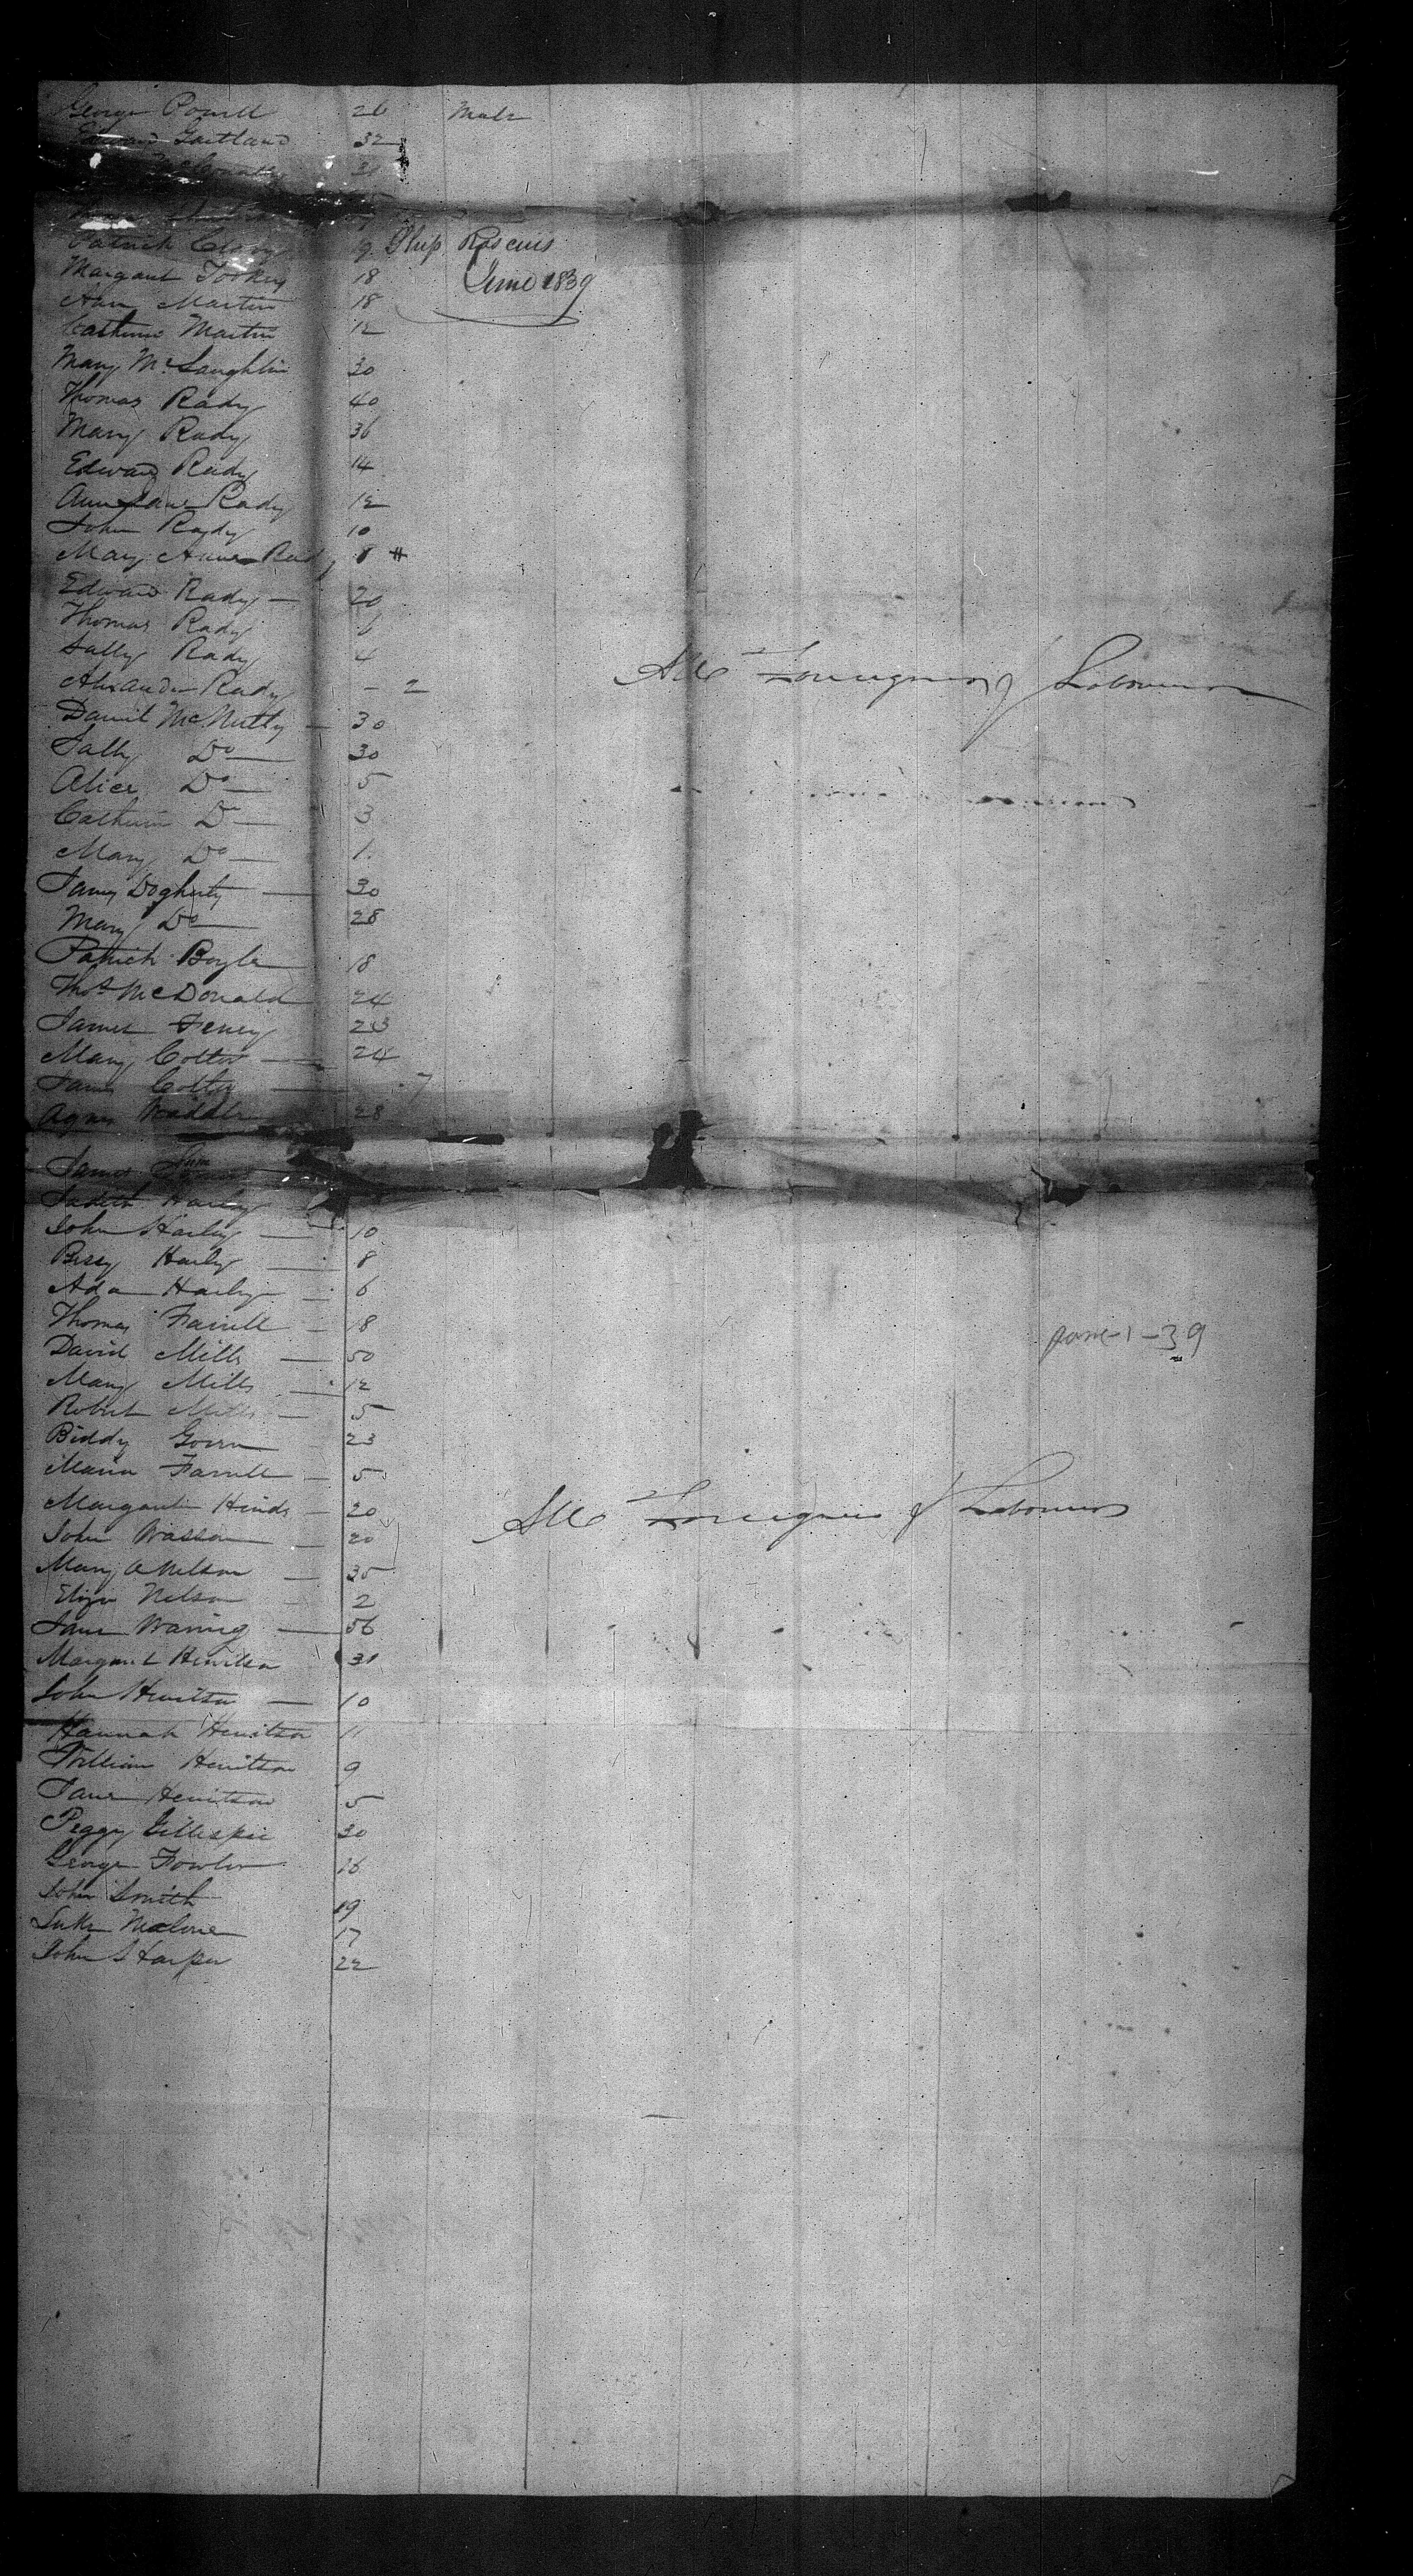 George Powell 26 Male
Gartland 32
31
Patrick Clary 19 Ship Roscius
Margaret Tookey 18 June 1839
Ann Martin 18
Catherine Martin 12
Mary McLaughlin 30
Thomas Rady 40
Mary Rady 36
Edward Rady 14
Ann Jane Rady 12
John Rady 10
Mary Anne Rady 8 #
Edward Rady — 20
Thomas Rady 6
Sally Rady 4 All Foreigners & Labourers
Alexander Rady – 2
Daniel McNulty — 30
Sally Do — 30
Alice Do — 5
Catherine Do — 3
Mary Do — 1
James Dogherty — 30
Mary Do — 28
Patrick Boyle 18
Thos McDonald 24
James Feney 23
Mary Colter — 24
James Colter — 7
Agnes Waddle 28
James
Judith Harley
John Harley — 10
Bessy Harley — 8
Ada Harley — 6
Thomas Farrell — 18
David Mills — 50 June-1-39
Mary Mills — 12
Robert Mills — 5
Biddy 23
Maria Farrell — 5
Margaret Hinds — 20 All Foreigners & Labourers
John Wasson — 20
Mary A Nelson — 35
Eliza Nelson – 2
Jane Waring — 56
Margaret Hewitson 31
John Hewitson — 10
Hannah Hewitson 11
William Hewitson 9
Jane Hewitson 5
Peggy Gillespie 30
George Fowler 26
John Smith 19
Luke Malone 17
John Harper 22